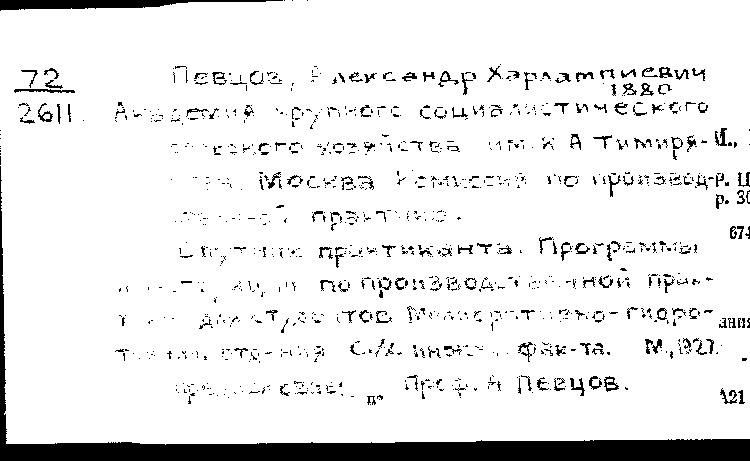 72
2611.
Певцов, Александр Харлампиевич
1880
Академия крупного социалистического
сельского хозяйства им. К А Тимиря-
зева. Москва Комиссия по производ-
ственной практике.
Спутник практиканта. Программы
и по производственной прак-
для студентов Мелиоративно-гидро-
отд-ния С./Х. инжен. фак-та. М., 1927.
Проф. А Певцов.
р. 30
674
ания